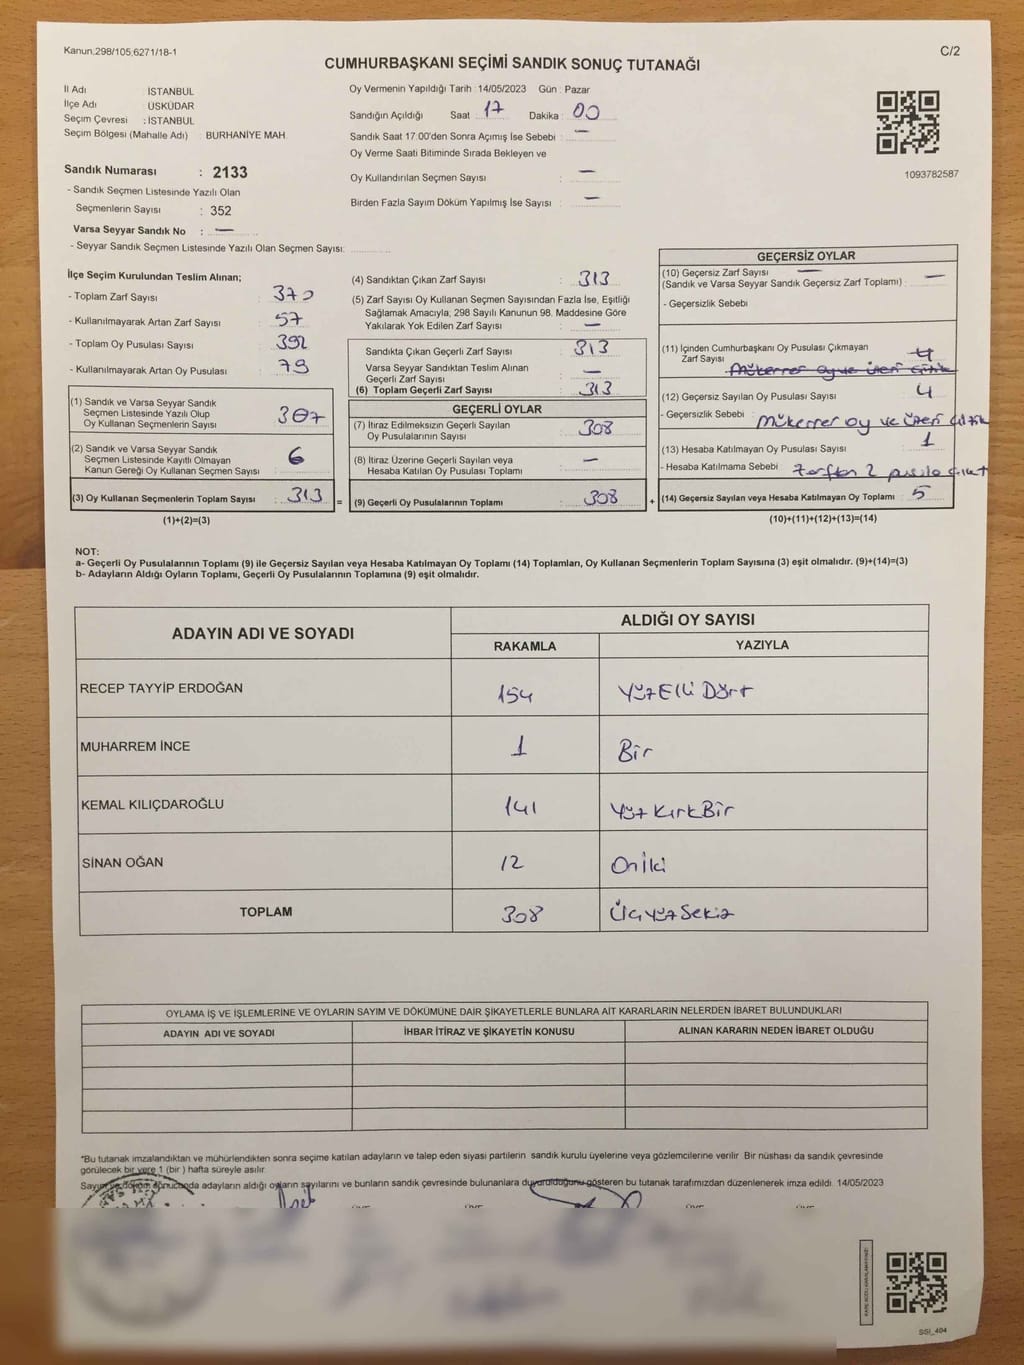 Kanun.298/105,6271/18-1
C/2
CUMHURBAŞKANI SEÇİMİ SANDIK SONUÇ TUTANAĞI
İl Adı : İSTANBUL
İlçe Adı : ÜSKÜDAR
Seçim Çevresi : İSTANBUL
Seçim Bölgesi (Mahalle Adı) : BURHANİYE MAH.
Sandık Numarası : 2133
- Sandık Seçmen Listesinde Yazılı Olan
Seçmenlerin Sayısı : 352
Varsa Seyyar Sandık No : —
- Seyyar Sandık Seçmen Listesinde Yazılı Olan Seçmen Sayısı:
Oy Vermenin Yapıldığı Tarih : 14/05/2023 Gün : Pazar
Sandığın Açıldığı Saat : 17 Dakika : 00
Sandık Saat 17:00'den Sonra Açımış İse Sebebi : —
Oy Verme Saati Bitiminde Sırada Bekleyen ve
Oy Kullandırılan Seçmen Sayısı : —
Birden Fazla Sayım Döküm Yapılmış İse Sayısı : —
1093782587
İlçe Seçim Kurulundan Teslim Alınan;
- Toplam Zarf Sayısı : 370
- Kullanılmayarak Artan Zarf Sayısı : 57
- Toplam Oy Pusulası Sayısı : 392
- Kullanılmayarak Artan Oy Pusulası : 79
(1) Sandık ve Varsa Seyyar Sandık
Seçmen Listesinde Yazılı Olup
Oy Kullanan Seçmenlerin Sayısı : 307
(2) Sandık ve Varsa Seyyar Sandık
Seçmen Listesinde Kayıtlı Olmayan
Kanun Gereği Oy Kullanan Seçmen Sayısı : 6
(3) Oy Kullanan Seçmenlerin Toplam Sayısı : 313 =
(1)+(2)=(3)
(4) Sandıktan Çıkan Zarf Sayısı : 313
(5) Zarf Sayısı Oy Kullanan Seçmen Sayısından Fazla İse, Eşitliği
Sağlamak Amacıyla, 298 Sayılı Kanunun 98. Maddesine Göre
Yakılarak Yok Edilen Zarf Sayısı : —
Sandıkta Çıkan Geçerli Zarf Sayısı : 313
Varsa Seyyar Sandıktan Teslim Alınan
Geçerli Zarf Sayısı : —
(6) Toplam Geçerli Zarf Sayısı : 313
GEÇERLİ OYLAR
(7) İtiraz Edilmeksizin Geçerli Sayılan
Oy Pusulalarının Sayısı : 308
(8) İtiraz Üzerine Geçerli Sayılan veya
Hesaba Katılan Oy Pusulası Toplamı : —
(9) Geçerli Oy Pusulalarının Toplamı : 308 +
GEÇERSİZ OYLAR
(10) Geçersiz Zarf Sayısı —
(Sandık ve Varsa Seyyar Sandık Geçersiz Zarf Toplamı) : —
- Geçersizlik Sebebi :
(11) İçinden Cumhurbaşkanı Oy Pusulası Çıkmayan
Zarf Sayısı : 4
Mükerrer oy ve üzeri çizik
(12) Geçersiz Sayılan Oy Pusulası Sayısı : 4
- Geçersizlik Sebebi : Mükerrer oy ve üzeri çizik
(13) Hesaba Katılmayan Oy Pusulası Sayısı : 1
- Hesaba Katılmama Sebebi : zarftan 2 pusula çıktı
(14) Geçersiz Sayılan veya Hesaba Katılmayan Oy Toplamı : 5
(10)+(11)+(12)+(13)=(14)
NOT:
a- Geçerli Oy Pusulalarının Toplamı (9) ile Geçersiz Sayılan veya Hesaba Katılmayan Oy Toplamı (14) Toplamları, Oy Kullanan Seçmenlerin Toplam Sayısına (3) eşit olmalıdır. (9)+(14)=(3)
b- Adayların Aldığı Oyların Toplamı, Geçerli Oy Pusulalarının Toplamına (9) eşit olmalıdır.
ADAYIN ADI VE SOYADI
ALDIĞI OY SAYISI
RAKAMLA YAZIYLA
RECEP TAYYİP ERDOĞAN 154 Yüz Elli Dört
MUHARREM İNCE 1 Bir
KEMAL KILIÇDAROĞLU 141 Yüz Kırk Bir
SİNAN OĞAN 12 On iki
TOPLAM 308 Üç yüz Sekiz
OYLAMA İŞ VE İŞLEMLERİNE VE OYLARIN SAYIM VE DÖKÜMÜNE DAİR ŞİKAYETLERLE BUNLARA AİT KARARLARIN NELERDEN İBARET BULUNDUKLARI
ADAYIN ADI VE SOYADI İHBAR İTİRAZ VE ŞİKAYETİN KONUSU ALINAN KARARIN NEDEN İBARET OLDUĞU
*Bu tutanak imzalandıktan ve mühürlendikten sonra seçime katılan adayların ve talep eden siyasi partilerin sandık kurulu üyelerine veya gözlemcilerine verilir. Bir nüshası da sandık çevresinde
görülecek bir yere 1 (bir ) hafta süreyle asılır.
Sayım ve döküm sonucunda adayların aldığı oyların sayılarını ve bunların sandık çevresinde bulunanlara duyurulduğunu gösteren bu tutanak tarafımızdan düzenlenerek imza edildi. 14/05/2023
SSI_404